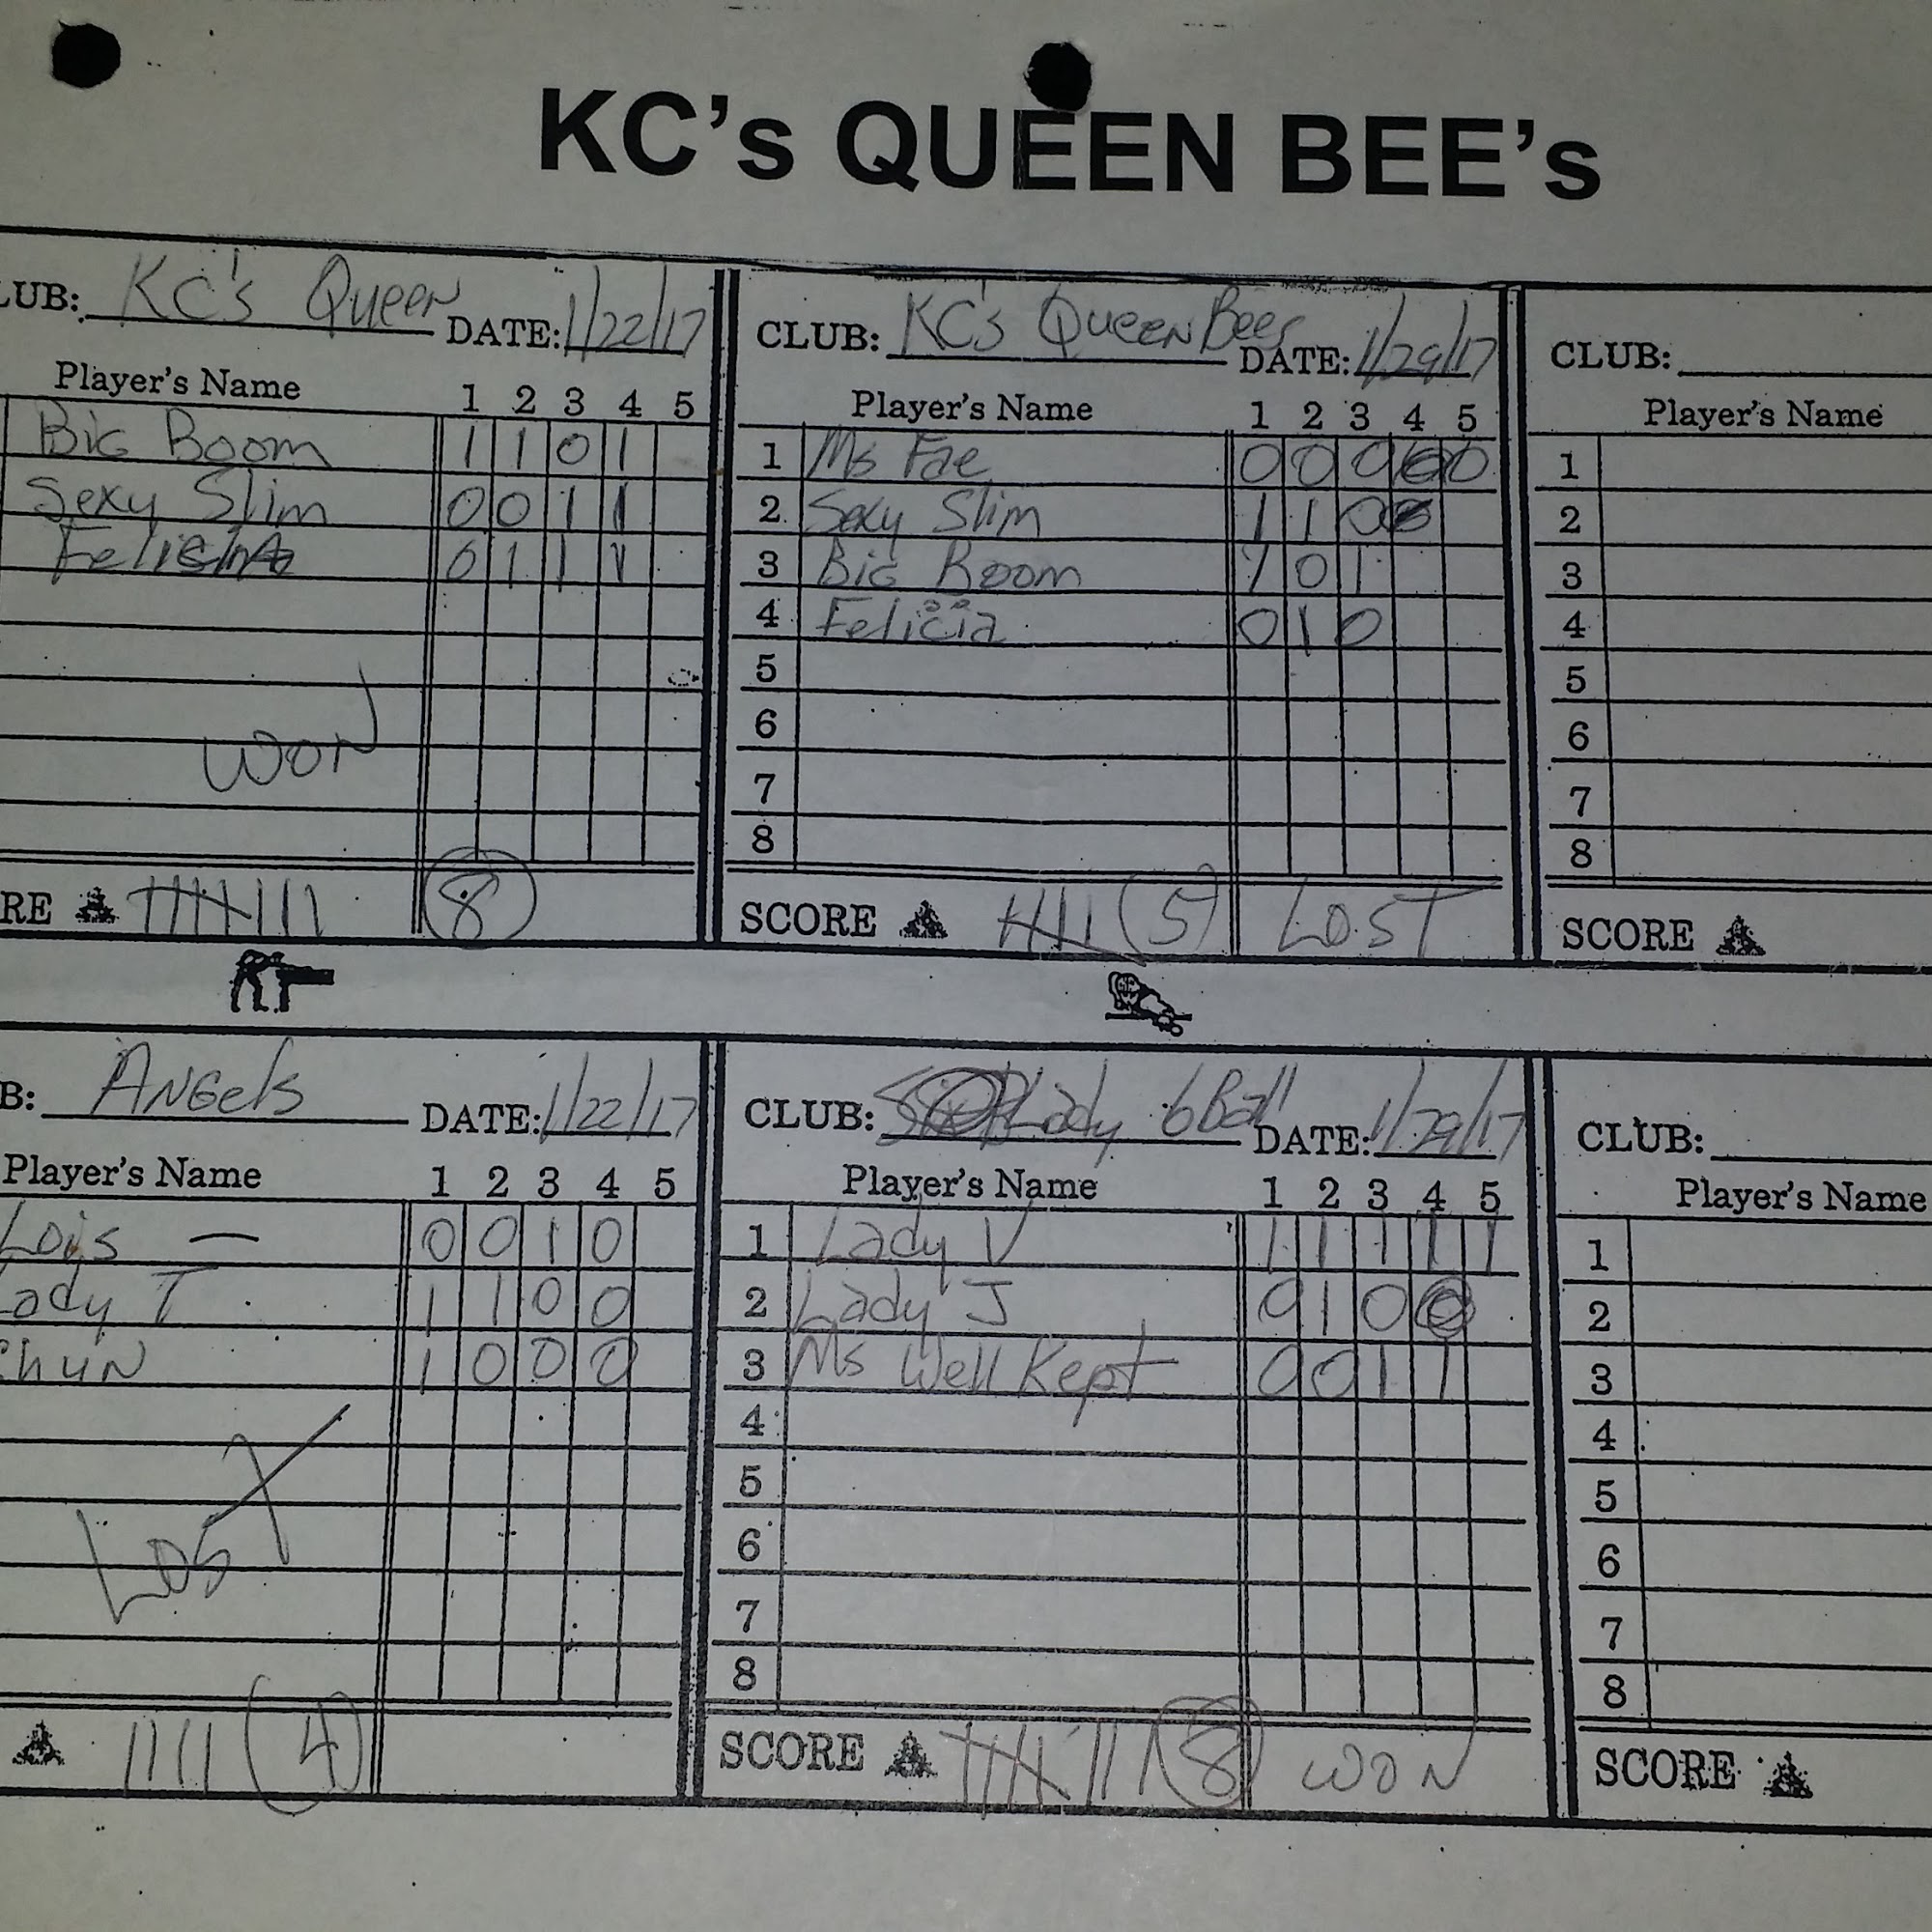 KC's QUEEN BEE's
LUB: KC's Queen DATE: 1/22/17
Player's Name 1 2 3 4 5
Big Boom 1 1 0 1
Sexy Slim 0 0 1 1
Felicia 0 1 1 1
WON
RE 8
CLUB: KC's Queen Bees DATE: 1/29/17
Player's Name 1 2 3 4 5
1 Ms Fae 0 0 0 0 0
2 Sexy Slim 1 1 0
3 Big Boom 1 0 1
4 Felicia 0 1 0
5
6
7
8
SCORE (5) LOST
CLUB:
Player's Name
1
2
3
4
5
6
7
8
SCORE
B: Angels DATE: 1/22/17
Player's Name 1 2 3 4 5
Lois — 0 0 1 0
ady T 1 1 0 0
hun 1 0 0 0
Lost
1111 (4)
CLUB: Lady 6 Ball DATE: 1/29/17
Player's Name 1 2 3 4 5
1 Lady V 1 1 1 1 1
2 Lady J 0 1 0 0
3 Ms Well Kept 0 0 1 1
4
5
6
7
8
SCORE 8 WON
CLUB:
Player's Name
1
2
3
4
5
6
7
8
SCORE